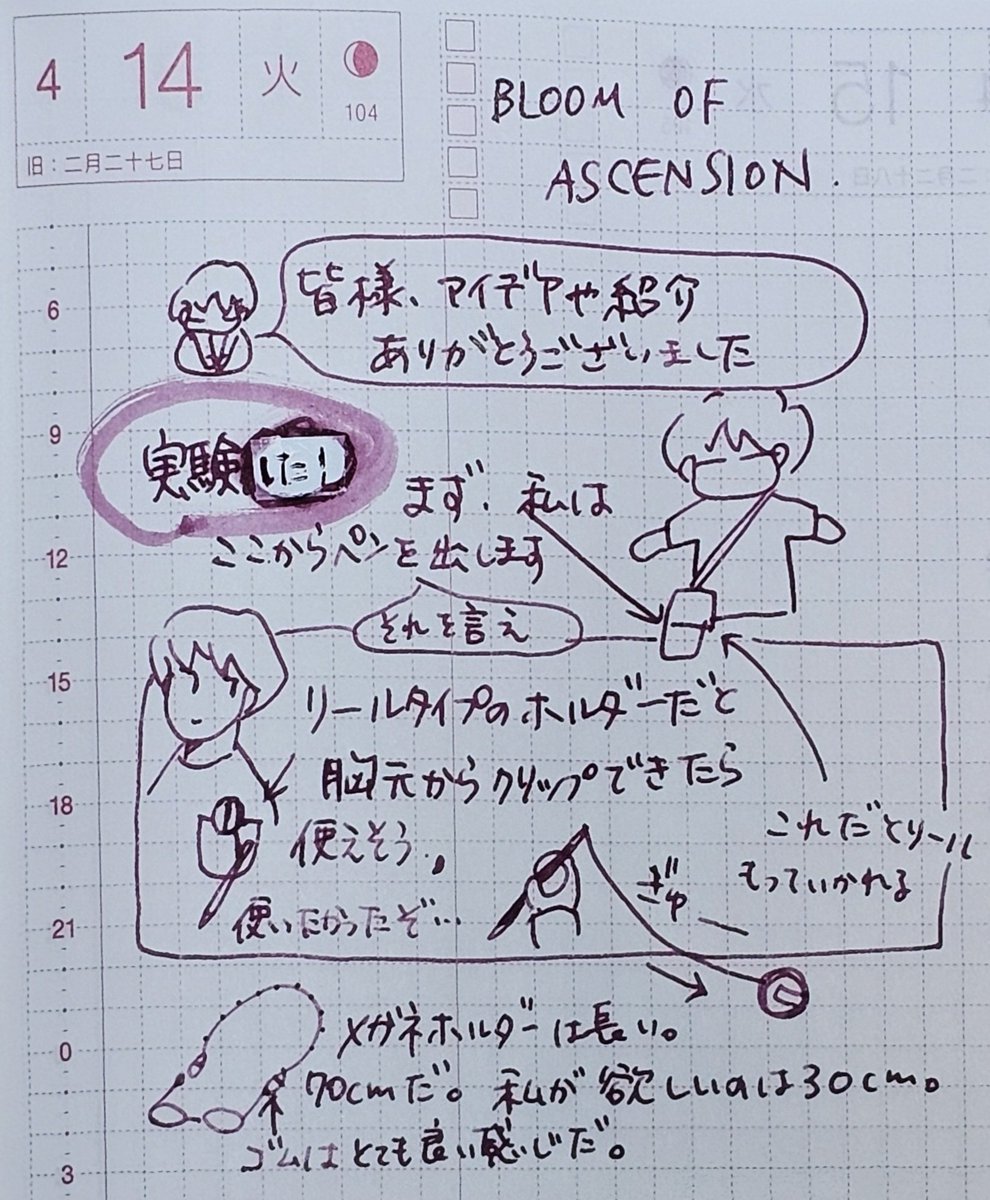 4 14 火
104
旧：二月二十七日
BLOOM OF
ASCENSION.
皆様、アイデアや紹介
ありがとうございました
6
9
実験した！
まず、私は
12
ここからペンを出します
それを言え
15
リールタイプのホルダーだと
胸元からクリップできたら
18
使えそう、
これだとリール
もっていかれる
21
使いたかったぞ…
メガネホルダーは長い。
0
70cmだ。私が欲しいのは30cm。
ゴムはとても良い感じだ。
3